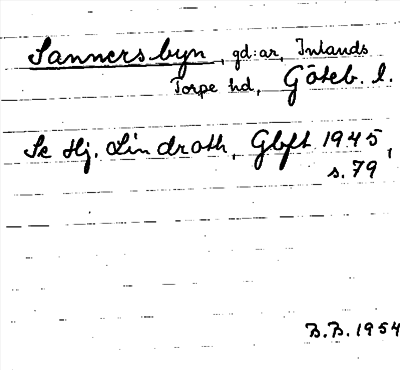 Sannersbyn, gd:ar, Inlands
Torpe hd, Göteb. l.
Se Hj. Lindroth, Gbft 1945,
s. 79
B.B. 1954